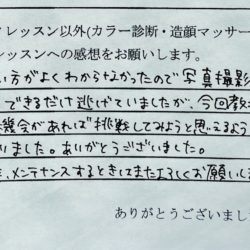 レッスン以外(カラー診断・造顔マッサー
レッスンへの感想をお願いします。
い方がよくわからなかったので写真撮影
できるだけ逃げていましたが、今回教
機会があれば挑戦してみようと思えるよう
いました。ありがとうございました。
、メンテナンスするときはまたよろしくお願いし
ありがとうございまし